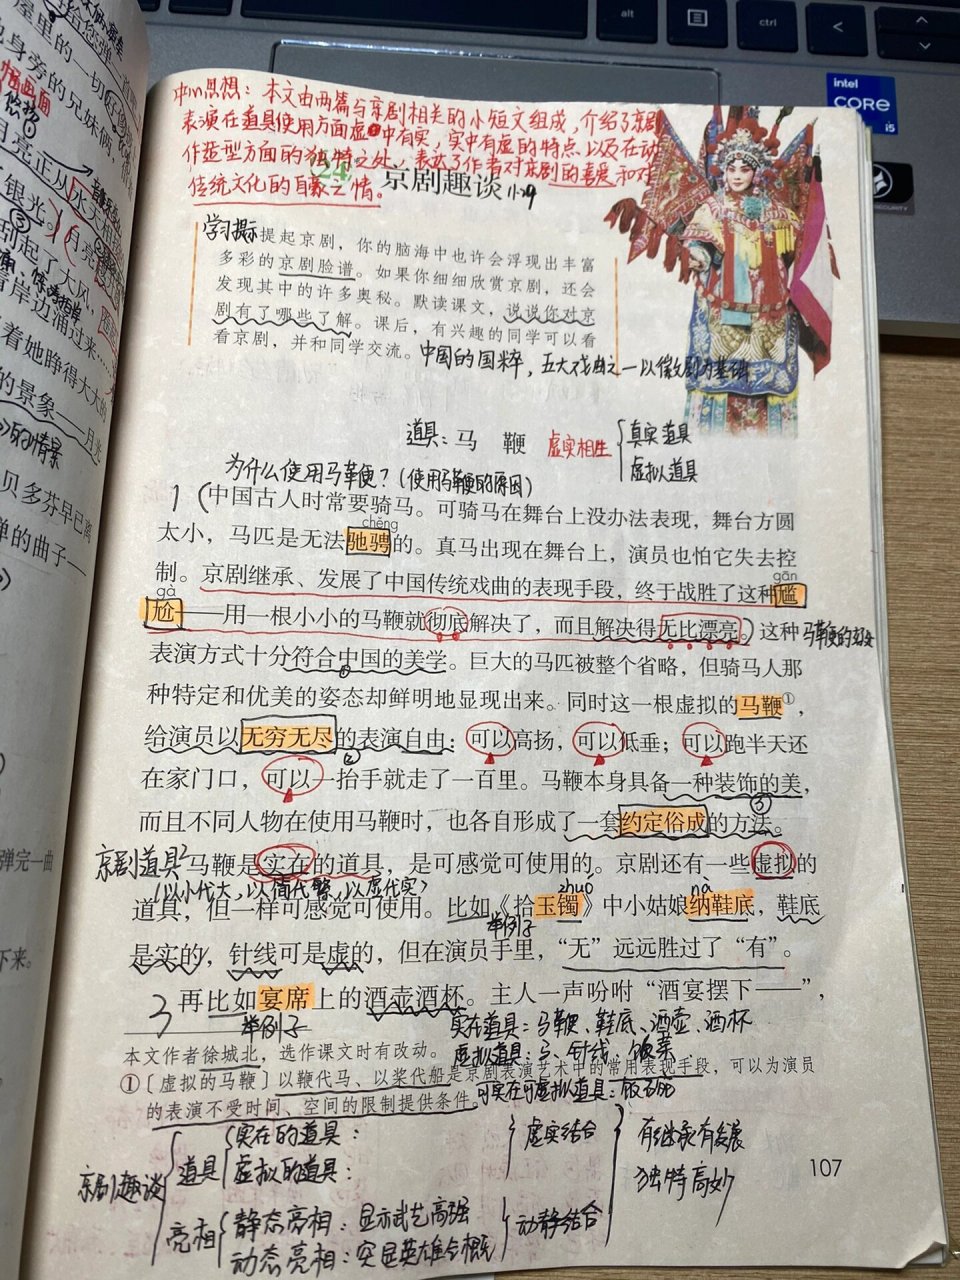 alt
ctrl
intel
CORE
i5
SECURITY
中心思想：本文由两篇与京剧相关的小短文组成，介绍了京剧
表演在道具使用方面虚中有实，实中有虚的特点以及在动
作造型方面的独特之处，表达了作者对京剧的喜爱和对
传统文化的自豪之情。
24 京剧趣谈
学习提示
提起京剧，你的脑海中也许会浮现出丰富
多彩的京剧脸谱。如果你细细欣赏京剧，还会
发现其中的许多奥秘。默读课文，说说你对京
剧有了哪些了解。课后，有兴趣的同学可以看
看京剧，并和同学交流。
中国的国粹，五大戏曲之一 以徽剧为基础
道具：马 鞭 虚实相生 真实道具
虚拟道具
为什么使用马鞭？（使用马鞭的原因）
1 中国古人时常要骑马。可骑马在舞台上没办法表现，舞台方圆
chěng
太小，马匹是无法驰骋的。真马出现在舞台上，演员也怕它失去控
制。京剧继承、发展了中国传统戏曲的表现手段，终于战胜了这种尴
gān
gà
尬——用一根小小的马鞭就彻底解决了，而且解决得无比漂亮。这种
马鞭的好处
表演方式十分符合中国的美学。巨大的马匹被整个省略，但骑马人那
种特定和优美的姿态却鲜明地显现出来。同时这一根虚拟的马鞭①，
给演员以无穷无尽的表演自由：可以高扬，可以低垂；可以跑半天还
在家门口，可以一抬手就走了一百里。马鞭本身具备一种装饰的美，
而且不同人物在使用马鞭时，也各自形成了一套约定俗成的方法。
京剧道具 2 马鞭是实在的道具，是可感觉可使用的。京剧还有一些虚拟的
（以小代大，以简代繁，以虚代实）
zhuó
nà
道具，但一样可感觉可使用。比如《拾玉镯》中小姑娘纳鞋底，鞋底
举例子
是实的，针线可是虚的，但在演员手里，“无”远远胜过了“有”。
3 再比如宴席上的酒壶酒杯。主人一声吩咐“酒宴摆下——”，
举例子
实在道具：马鞭、鞋底、酒壶、酒杯
虚拟道具：马、针线、饭菜
本文作者徐城北，选作课文时有改动。
①〔虚拟的马鞭〕以鞭代马、以桨代船是京剧表演艺术中的常用表现手段，可以为演员
的表演不受时间、空间的限制提供条件。
可实在可虚拟道具：
京剧趣谈
道具
实在的道具：
虚拟的道具：
虚实结合
亮相
静态亮相：显示武艺高强
动态亮相：突显英雄气概
动静结合
有继承有发展
独特高妙
107